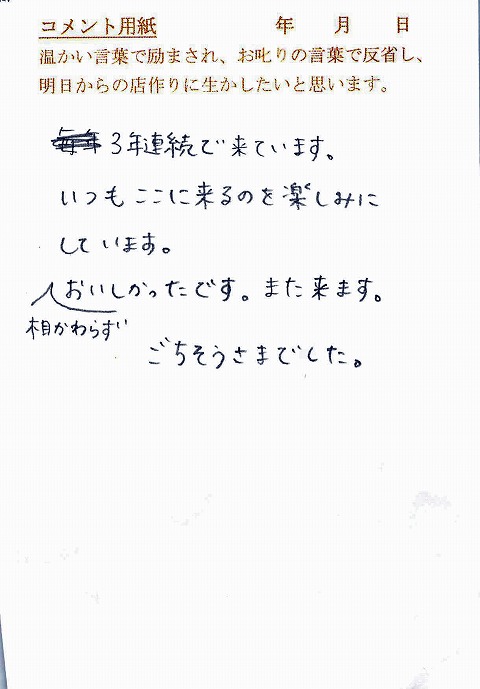 コメント用紙 年 月 日
温かい言葉で励まされ、お叱りの言葉で反省し、
明日からの店作りに生かしたいと思います。
毎年 3年連続で来ています。
いつもここに来るのを楽しみに
しています。
おいしかったです。また来ます。
相かわらず
ごちそうさまでした。